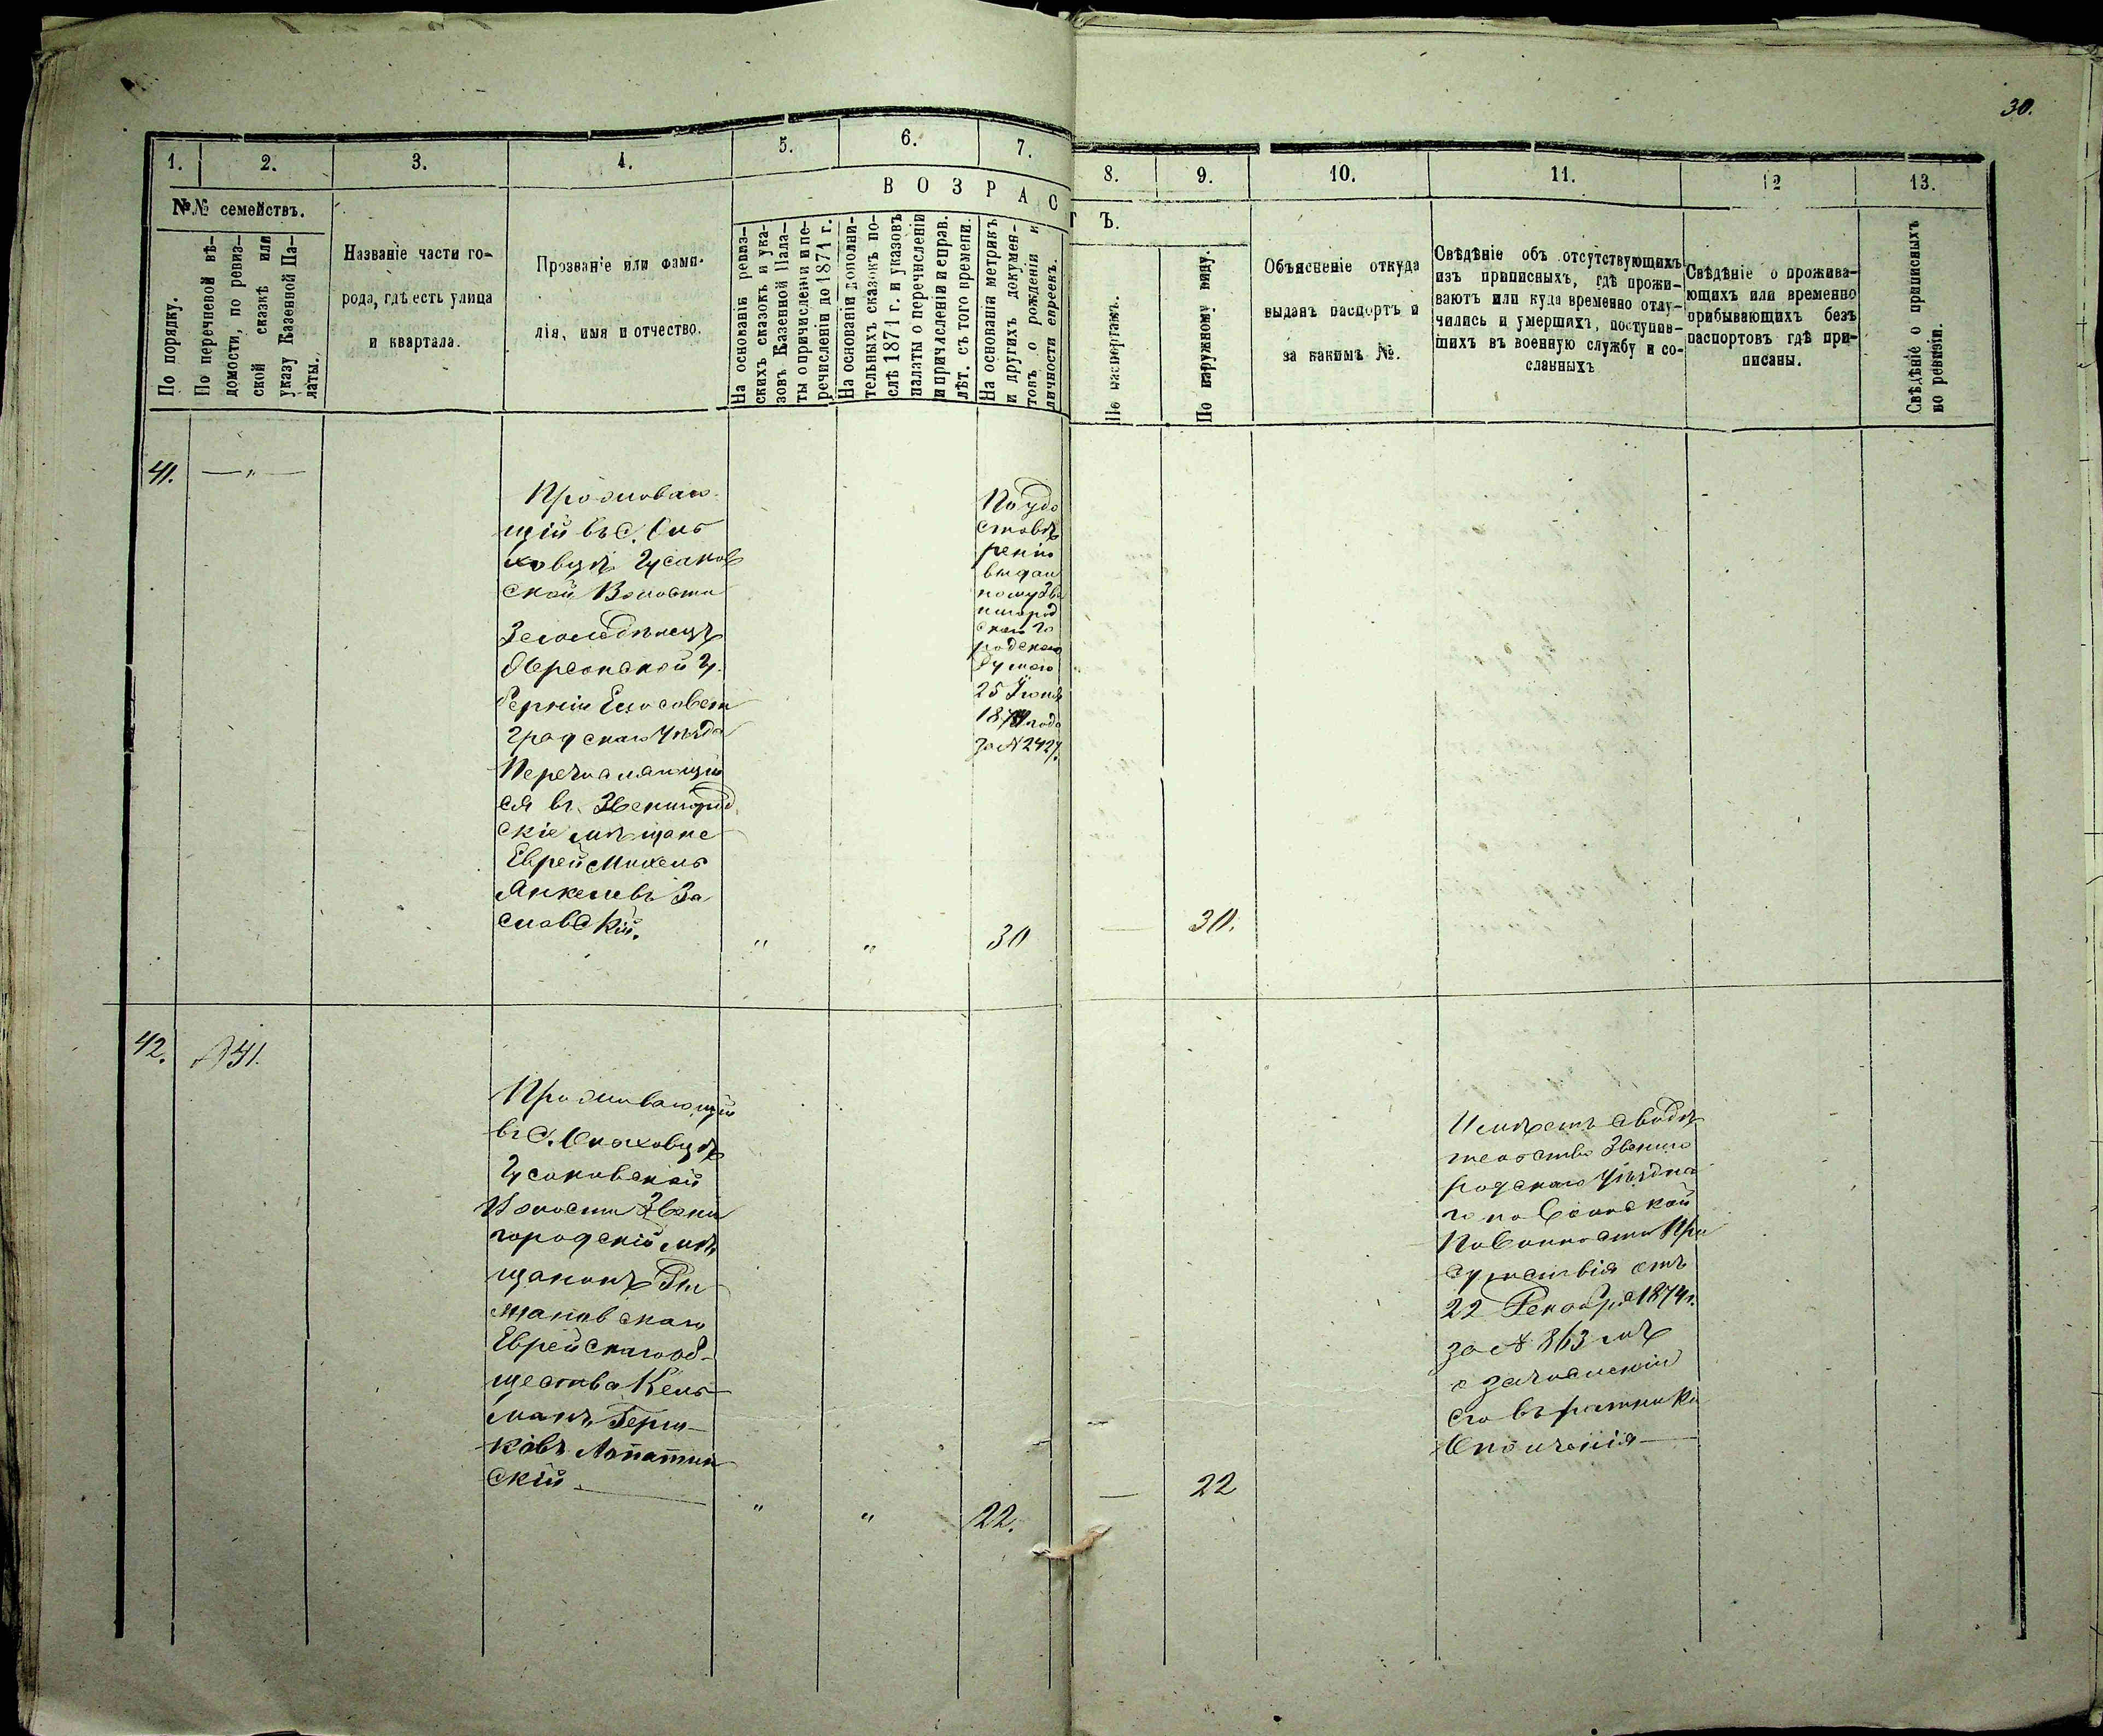 30.
1. 2. 3. 4. 5. 6. 7. 8. 9. 10. 11. 12 13.
№№ семействъ.
По порядку.
По перечневой вѣ-
домости, по ревиз-
ской сказкѣ или
указу Казенной Па-
латы.
Названіе части го-
рода, гдѣ есть улица
и квартала.
Прозваніе или фами-
лія, имя и отчество.
ВОЗРАСТЪ.
На основаніи ревиз-
скихъ сказокъ и ука-
зовъ Казенной Пала-
ты о причисленіи и пе-
речисленіи до 1871 г.
На основаніи дополни-
тельныхъ сказокъ по-
слѣ 1871 г. и указовъ
палаты о перечисленіи
и причисленіи и справ.
лѣт. съ того времени.
На основаніи метрикъ
и другихъ докумен-
товъ о рожденіи и
личности евреевъ.
По паспортамъ.
По наружному виду.
Объясненіе откуда
выданъ паспортъ и
за какимъ №.
Свѣдѣніе объ отсутствующихъ
изъ приписныхъ, гдѣ прожи-
ваютъ или куда временно отлу-
чились и умершихъ, поступив-
шихъ въ военную службу и со-
сланныхъ
Свѣдѣніе о прожива-
ющихъ или временно
прибывающихъ безъ
паспортовъ гдѣ при-
писаны.
Свѣдѣніе о приписныхъ
по ревизіи.
41. — „ —
Проживаю
щій въ с. Оль
ховцѣ Гусаков
ской Волости
Земледѣлецъ
Херсонской Гу
берніи Елисовет
градскаго Уѣзда
Перечисляющій
ся въ Звенигород
скіе мѣщане
Еврей Михель
Янкелевъ За
славскій.
„ „ 30 — 30.
По удо
ствовѣ
ренію
выдан
ному Зве
нигород
скою Го
родскою
Думою
25 Іюня
1874 года
за № 2427.
42. № 41.
Проживающій
въ с. Ольховцѣ
Гусаковской
Волости Звени
городскій мѣ
щанинъ
Еврейскаго об-
щества Кель
манъ Герш-
ковъ Лопатин
скій —
„ „ 22. — 22
Имѣетъ свидѣ
тельство Звениго
родскаго Уѣздна
го по Воинской
Повинности При
сутствія отъ
22 Декабря 1874 г.
за № 863 мъ
о зачисленіи
его въ ратники
Ополченія —